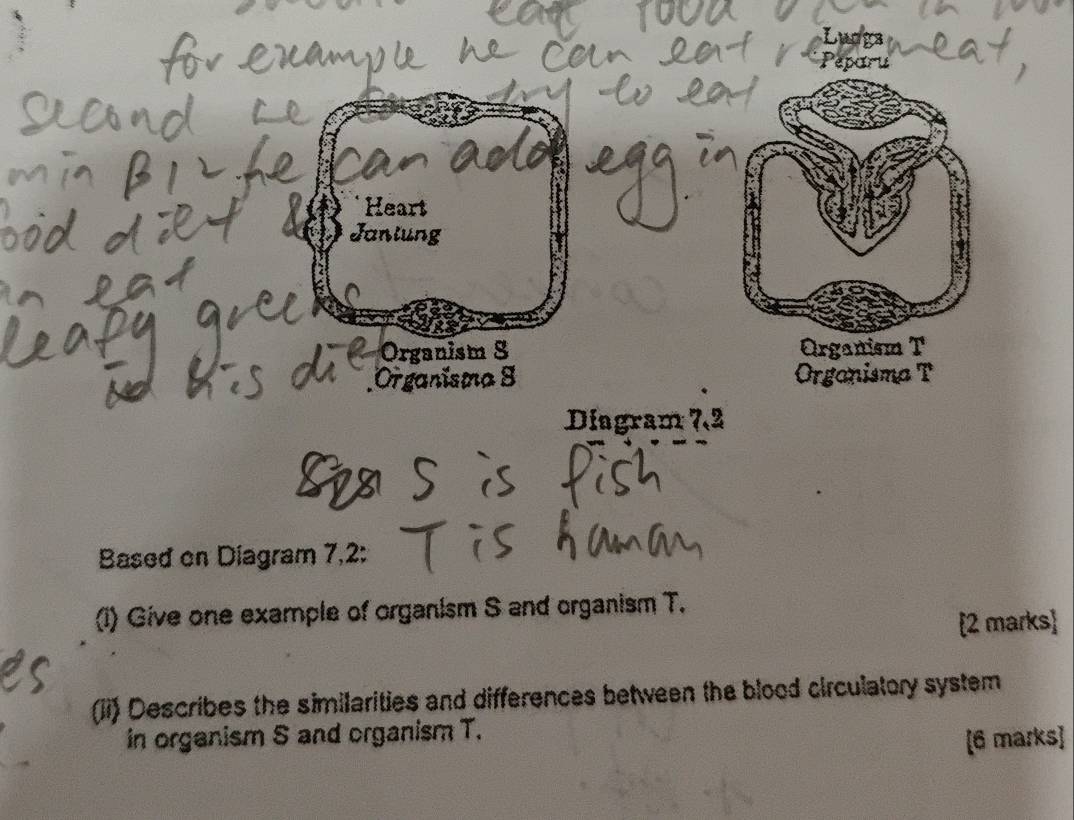 eat food
for example he can eat red meat,
second he try to eat
min B12 he can add egg in
food diet &
an eat
leafy greens
in his diet
Lungs
Peparu
Heart
Jantung
Organism S
Organisma S
Organism T
Organisma T
Diagram 7.2
S is fish
T is human
Based on Diagram 7.2:
(i) Give one example of organism S and organism T.
[2 marks]
es
(ii) Describes the similarities and differences between the blood circulatory system
in organism S and organism T.
[6 marks]